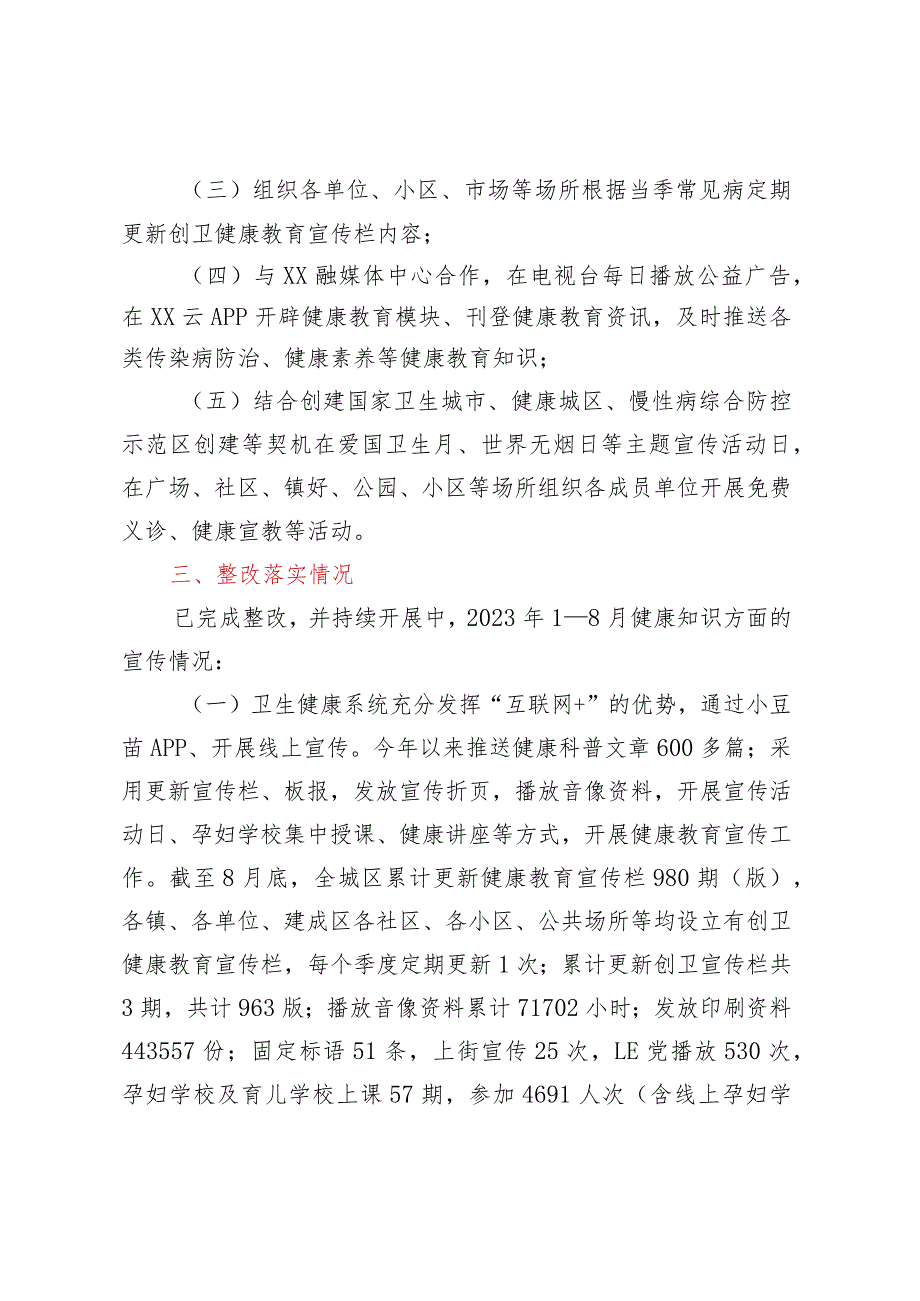 （三）组织各单位、小区、市场等场所根据当季常见病定期
更新创卫健康教育宣传栏内容；
（四）与XX融媒体中心合作，在电视台每日播放公益广告，
在XX云APP开辟健康教育模块、刊登健康教育资讯，及时推送各
类传染病防治、健康素养等健康教育知识；
（五）结合创建国家卫生城市、健康城区、慢性病综合防控
示范区创建等契机在爱国卫生月、世界无烟日等主题宣传活动日，
在广场、社区、镇好、公园、小区等场所组织各成员单位开展免费
义诊、健康宣教等活动。
三、整改落实情况
已完成整改，并持续开展中，2023年1—8月健康知识方面的
宣传情况：
（一）卫生健康系统充分发挥“互联网+”的优势，通过小豆
苗APP、开展线上宣传。今年以来推送健康科普文章600多篇；采
用更新宣传栏、板报，发放宣传折页，播放音像资料，开展宣传活
动日、孕妇学校集中授课、健康讲座等方式，开展健康教育宣传工
作。截至8月底，全城区累计更新健康教育宣传栏980期（版），
各镇、各单位、建成区各社区、各小区、公共场所等均设立有创卫
健康教育宣传栏，每个季度定期更新1次；累计更新创卫宣传栏共
3期，共计963版；播放音像资料累计71702小时；发放印刷资料
443557份；固定标语51条，上街宣传25次，LE党播放530次，
孕妇学校及育儿学校上课57期，参加4691人次（含线上孕妇学